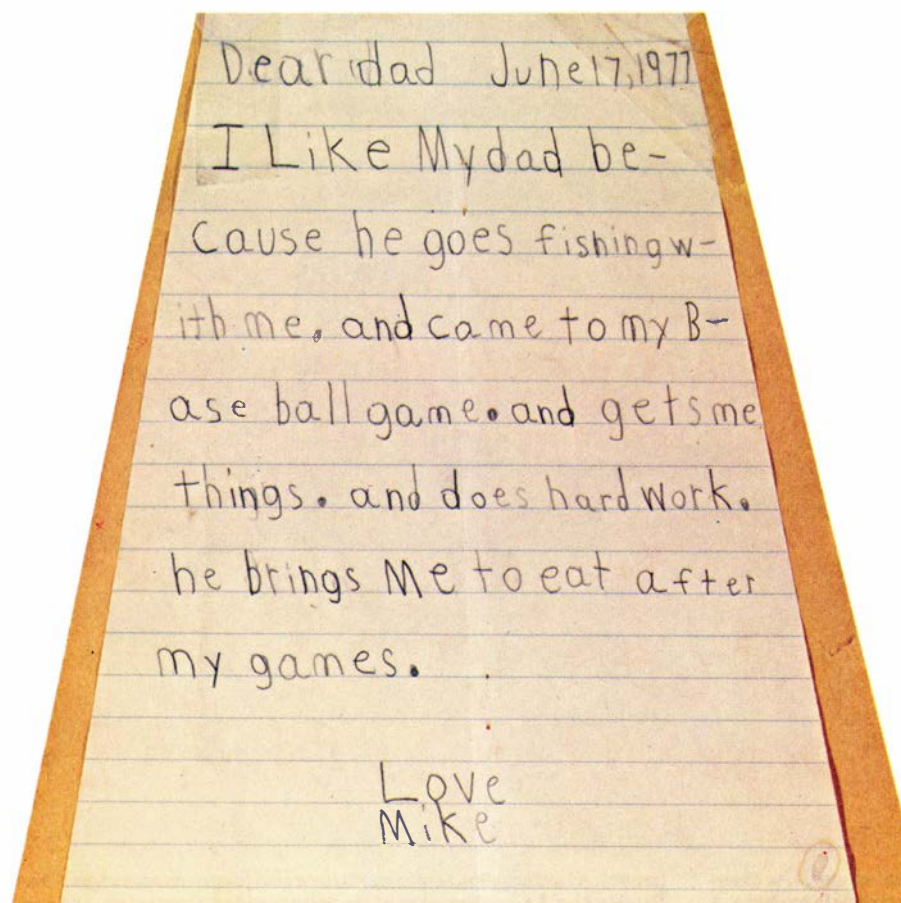 Dear dad June 17, 1977
I Like My dad be-
cause he goes fishing w-
ith me. and came to my B-
ase ball game. and gets me
things. and does hard work.
he brings Me to eat after
my games.
Love
Mike